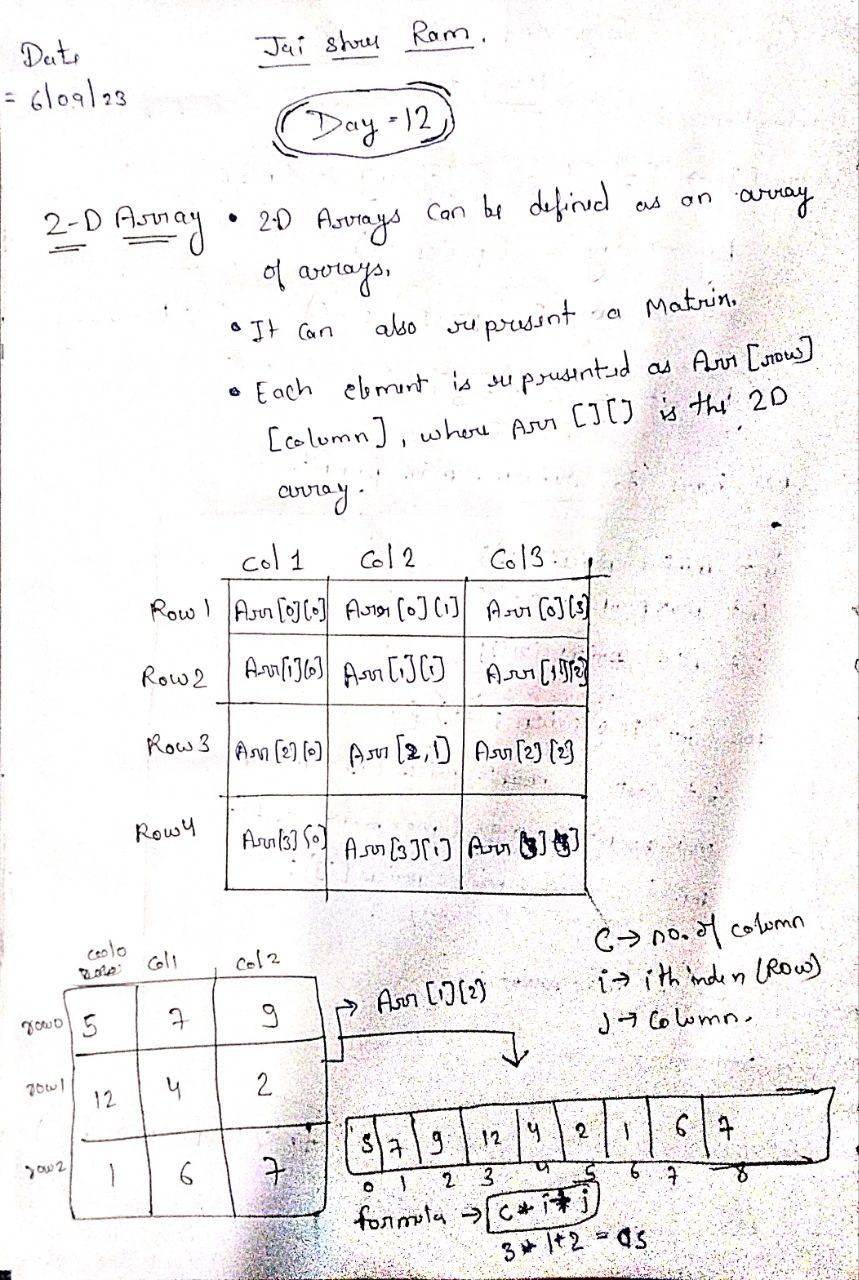 Date
= 6/09/23
Jai shree Ram.
Day - 12
2-D Array • 2-D Arrays can be defined as an array
of arrays,
• It can also represent a Matrix.
• Each element is represented as Arr [row]
[column], where Arr [][] is the 2D
array.
Col 1 Col 2 Col 3
Row 1 Arr[0][0] Arr[0][1] Arr[0][3]
Row 2 Arr[1][0] Arr[1][1] Arr[1][2]
Row 3 Arr[2][0] Arr[2,1] Arr[2][2]
Row 4 Arr[3][0] Arr[3][1] Arr
C → no. of column
i → ith index (Row)
J → Column.
col0 col1 col2
row0 5 7 9
row1 12 4 2
row2 1 6 7
→ Arr[1][2]
5 7 9 12 4 2 1 6 7
0 1 2 3 4 5 6 7 8
formula → C * i + j
3 * 1 + 2 = 05